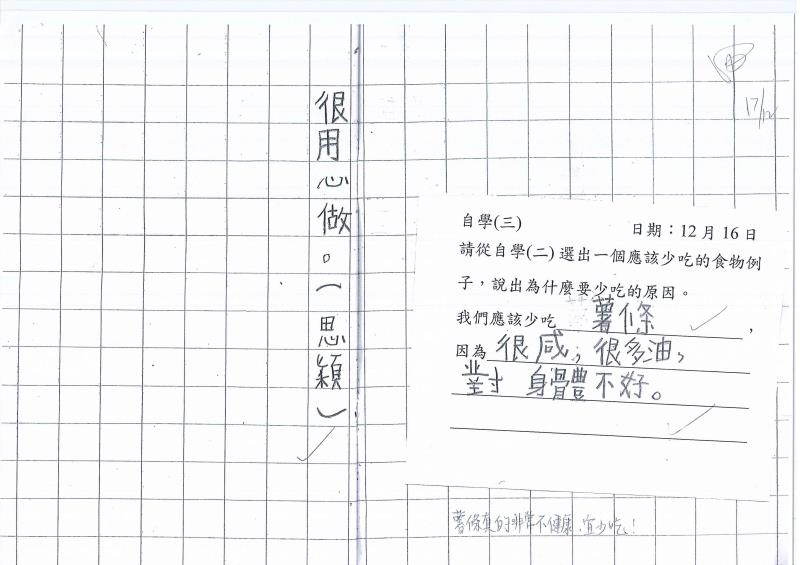 很用心做。(思穎)
17/12
自學(三)
日期:12月16日
請從自學(二)選出一個應該少吃的食物例
子,說出為什麼要少吃的原因。
我們應該少吃 薯條,
因為 很咸,很多油,
對 身體不好。
薯條真的非常不健康,宜少吃!